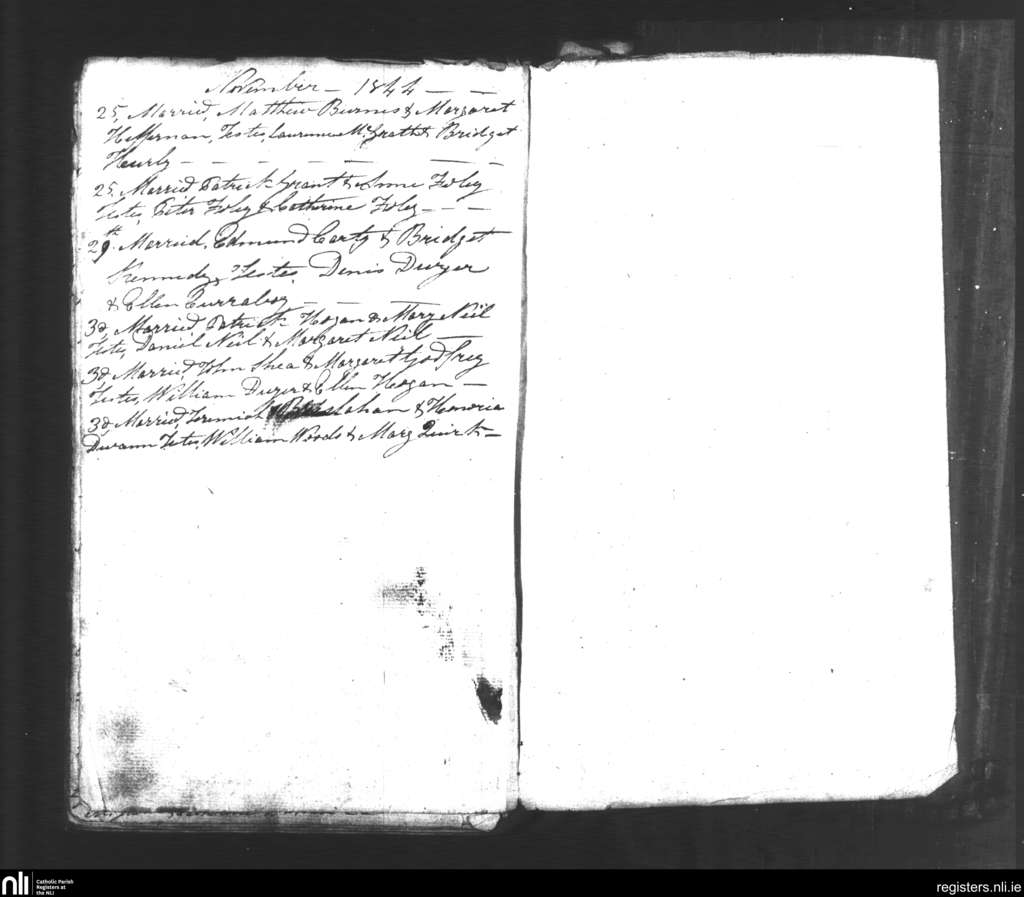 November - 1844 - -
25, Married, Matthew Burns & Margaret
Heffernan, Testes, Laurence McGrath & Bridget
Heurly - - - - - -
25, Married Patrick Grant & Anne Foley
Testes, Peter Foley & Catherine Foley - - -
29th. Married, Edmund Carty & Bridget
Kennedy, Testes, Denis Dwyer
& Ellen Curraboy - - -
30, Married, Patrick Hogan & Mary Neil
Testes, Daniel Neil & Margaret Neil -
30, Married, John Shea & Margaret Godfrey
Testes, William Dwyer & Ellen Hogan -
30, Married, Jeremiah & Honoria
Dwann Testes, William Woods & Mary Quirk -
nli
Catholic Parish
Registers at
the NLI
registers.nli.ie